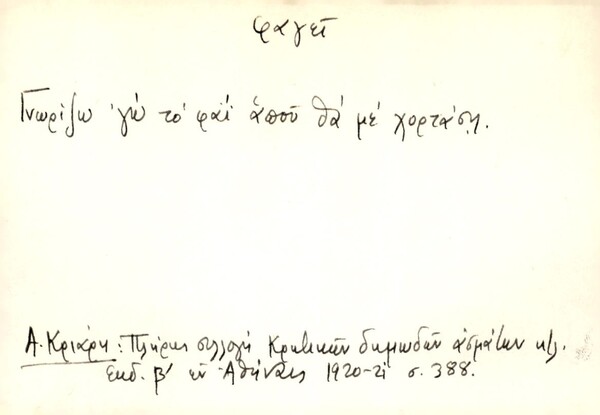 φαγεῖ
Γνωρίζω 'γώ τό φαΐ ἁποῦ θά μέ χορτάσῃ.
Α. Κριάρη: Πλήρης συλλογή Κρητικῶν δημωδῶν ἀσμάτων κτλ.
Ἐκδ. β' ἐν Ἀθήναις 1920-21 σ. 388.